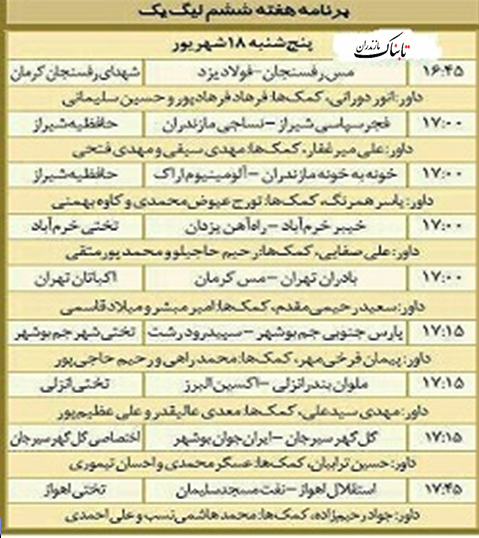 برنامه هفته ششم لیگ یک
تابناک مازندران
پنج‌شنبه ۱۸ شهریور
۱۶:۴۵ مس رفسنجان-فولاد یزد شهدای رفسنجان کرمان
داور: انور دورانی، کمک‌ها: فرهاد فرهادپور و حسین سلیمانی
۱۷:۰۰ فجر سپاسی شیراز-نساجی مازندران حافظیه شیراز
داور: علی میرغفار، کمک‌ها: مهدی سیفی و مهدی فتحی
۱۷:۰۰ خونه به خونه مازندران - آلومینیوم اراک حافظیه شیراز
داور: یاسر همرنگ، کمک‌ها: تورج عیوض‌محمدی و کاوه بهمنی
۱۷:۰۰ خیبر خرم‌آباد - راه‌آهن یزدان تختی خرم‌آباد
داور: علی صفایی، کمک‌ها: رحیم حاجیلو و محمد پورمتقی
۱۷:۰۰ بادران تهران - مس کرمان اکباتان تهران
داور: سعید رحیمی‌مقدم، کمک‌ها: امیر مبشر و میلاد قاسمی
۱۷:۱۵ پارس جنوبی جم بوشهر - سپیدرود رشت تختی شهر جم بوشهر
داور: پیمان فرخی‌مهر، کمک‌ها: محمد راهی و رحیم حاجی‌پور
۱۷:۱۵ ملوان بندر انزلی - اکسین البرز تختی انزلی
داور: مهدی سیدعلی، کمک‌ها: معدی عالیقدر و علی عظیم‌پور
۱۷:۱۵ گل‌گهر سیرجان - ایران‌جوان بوشهر اختصاصی گل‌گهر سیرجان
داور: حسین ترابیان، کمک‌ها: عسگر محمدی و احسان تیموری
۱۷:۴۵ استقلال اهواز - نفت مسجدسلیمان تختی اهواز
داور: جواد رحیم‌زاده، کمک‌ها: محمد هاشمی‌نسب و علی احمدی